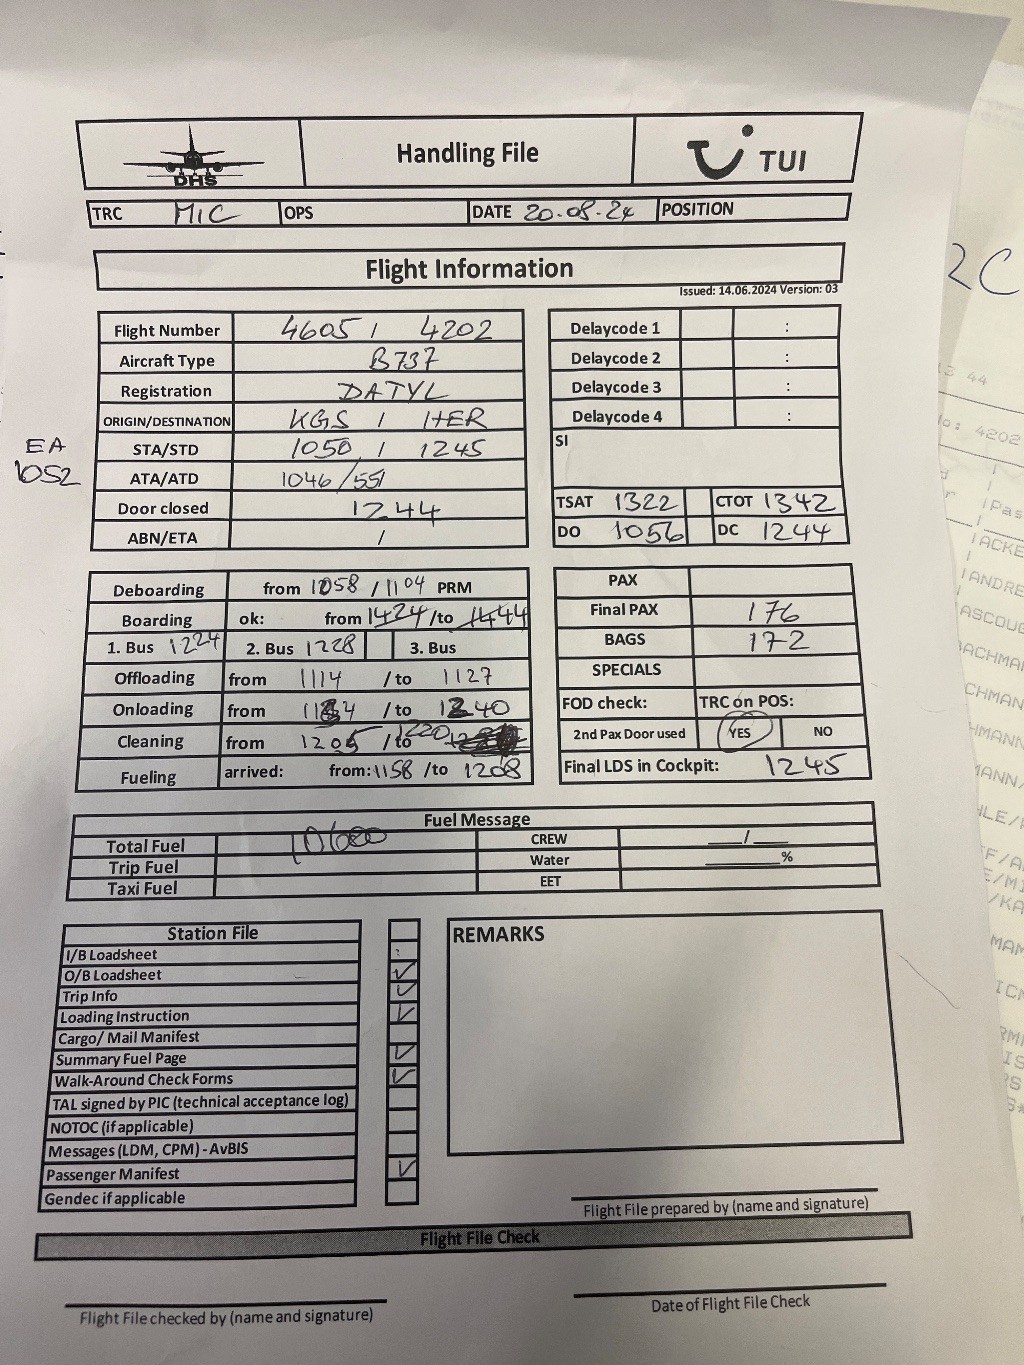 DHS
Handling File
TUI
TRC MIC OPS DATE 20.08.24 POSITION
Flight Information
Issued: 14.06.2024 Version: 03
Flight Number 4605 / 4202
Aircraft Type B737
Registration DATYL
ORIGIN/DESTINATION KGS / HER
EA
1052
STA/STD 1050 / 1245
ATA/ATD 1046/551
Door closed 1244
ABN/ETA /
Delaycode 1 :
Delaycode 2 :
Delaycode 3 :
Delaycode 4 :
SI
TSAT 1322 CTOT 1342
DO 1056 DC 1244
Deboarding from 1058 / 1104 PRM
Boarding ok: from 1424 /to 1444
1. Bus 1224 2. Bus 1228 3. Bus
Offloading from 1114 / to 1127
Onloading from / to 1240
Cleaning from 1205 / to 1220
Fueling arrived: from: 1158 /to 1208
PAX
Final PAX 176
BAGS 172
SPECIALS
FOD check: TRC on POS:
2nd Pax Door used YES NO
Final LDS in Cockpit: 1245
Fuel Message
Total Fuel 10600 CREW ___/___
Trip Fuel Water ______%
Taxi Fuel EET
Station File
I/B Loadsheet
O/B Loadsheet ✓
Trip Info ✓
Loading Instruction ✓
Cargo/ Mail Manifest
Summary Fuel Page ✓
Walk-Around Check Forms ✓
TAL signed by PIC (technical acceptance log)
NOTOC (if applicable)
Messages (LDM, CPM) - AvBIS
Passenger Manifest ✓
Gendec if applicable
REMARKS
Flight File prepared by (name and signature)
Flight File Check
Flight File checked by (name and signature)
Date of Flight File Check
2C
13 44
4202
ACKE
ANDRE
ASCOUG
CHMAN